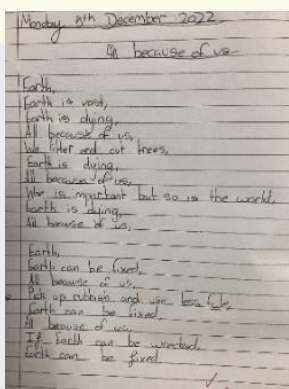 Monday 5th December 2022
All because of us
Earth,
Earth is vast,
Earth is dying,
All because of us,
We litter and cut trees,
Earth is dying,
All because of us,
War is important but so is the world,
Earth is dying,
All because of us,
Earth,
Earth can be fixed,
All because of us,
Pick up rubbish and use less
Earth can be fixed,
All because of us,
If Earth can be wrecked,
Earth can be fixed